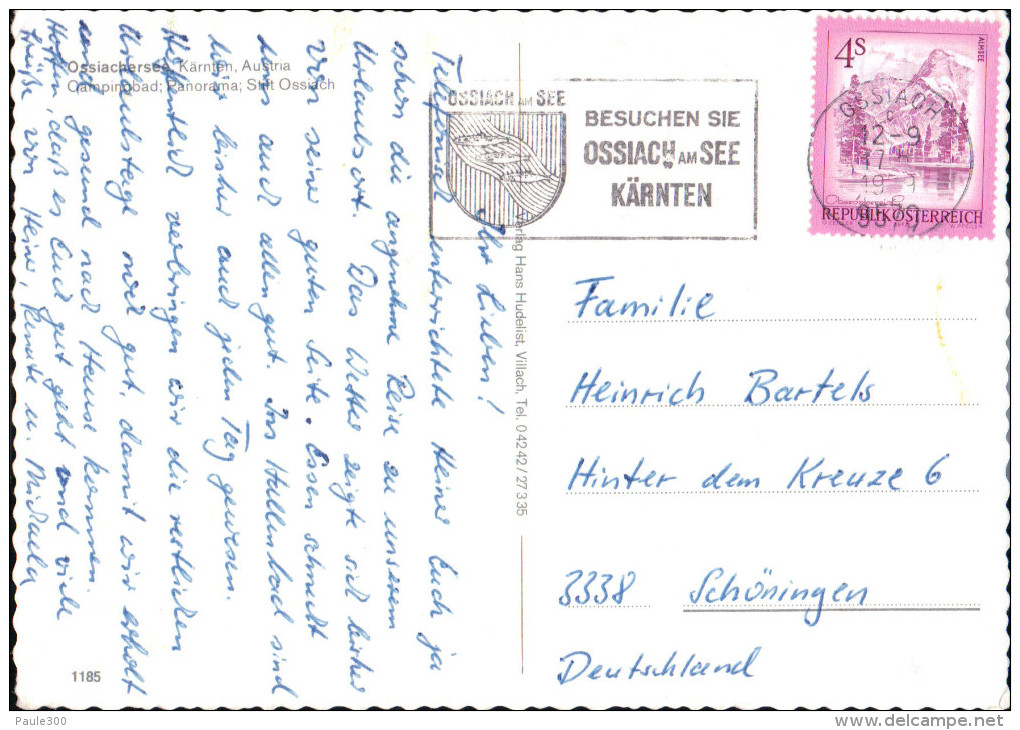 Ossiachersee, Kärnten, Austria
Campingbad; Panorama; Stift Ossiach
Ihr Lieben!
Telefonisch unterrichtete Heiner Euch ja
schon die angenehme Reise zu unserem
Urlaubsort. Das Wetter zeigte sich bisher
von seiner guten Seite. Essen schmeckt
uns auch allen gut. Im Hallenbad sind
wir bisher auch jeden Tag gewesen.
Hoffentlich verbringen wir die restlichen
Urlaubstage noch gut, damit wir erholt
und gesund nach Hause kommen.
Hoffen, daß es Euch gut geht und viele
Grüße von Heiner, Renate u. Michaela
1185
Verlag Hans Hudelist, Villach, Tel. 04242/27335
OSSIACH AM SEE
BESUCHEN SIE
OSSIACH AM SEE
KÄRNTEN
4S
ALMSEE
REPUBLIK ÖSTERREICH
OSSIACH
12-9
9570
Familie
Heinrich Bartels
Hinter dem Kreuze 6
3338 Schöningen
Deutschland
Paule300
www.delcampe.net